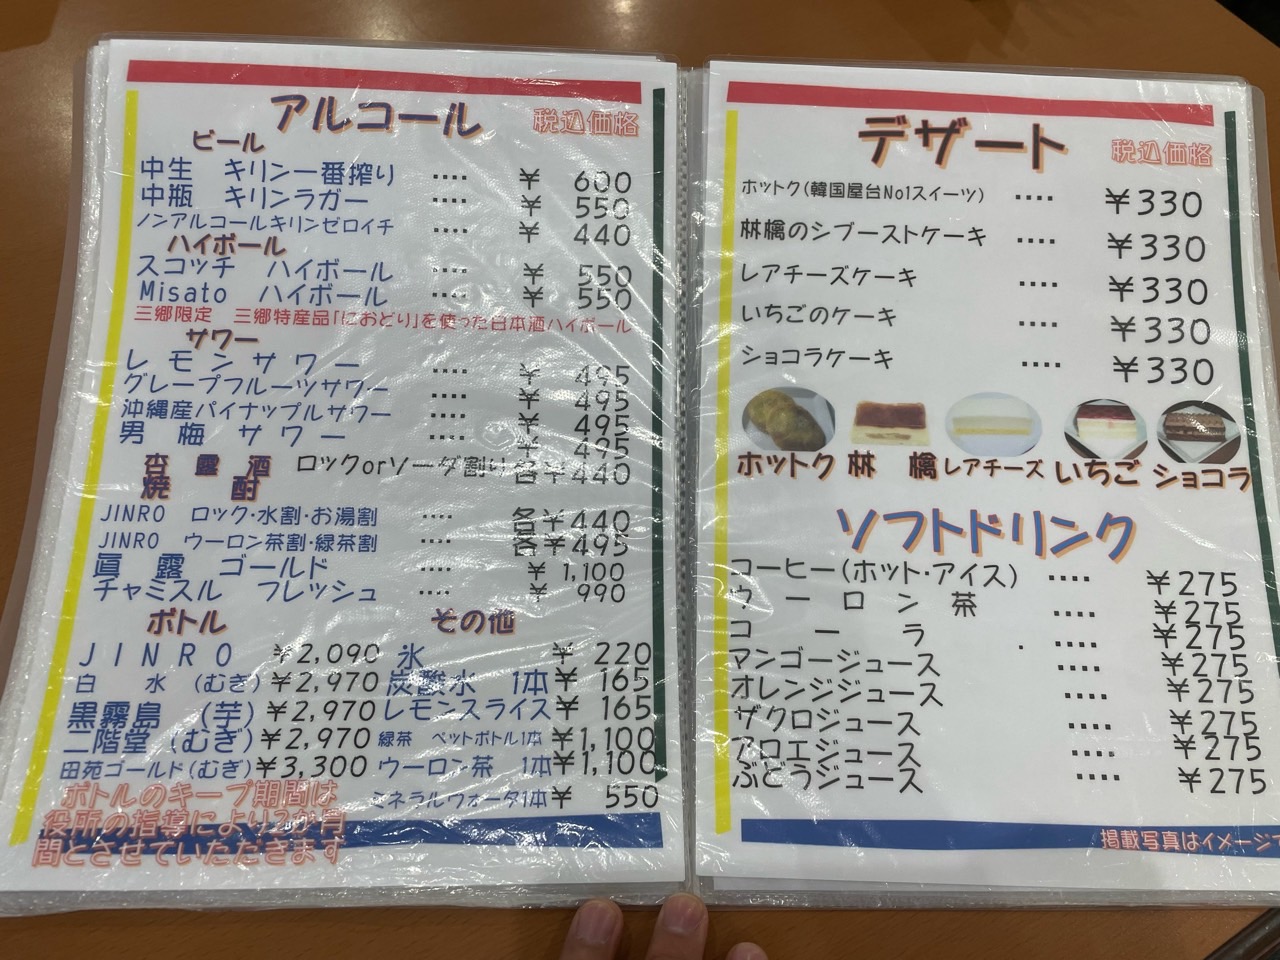 アルコール 税込価格
ビール
中生 キリン一番搾り ････ ￥ 600
中瓶 キリンラガー ････ ￥ 550
ノンアルコールキリンゼロイチ ････ ￥ 440
ハイボール
スコッチ ハイボール ････ ￥ 550
Misato ハイボール ････ ￥ 550
三郷限定 三郷特産品｢におどり｣を使った日本酒ハイボール
サワー
レモンサワー ････ ￥ 495
グレープフルーツサワー ････ ￥ 495
沖縄産パイナップルサワー ････ ￥ 495
男梅サワー ････ ￥ 495
杏露酒 ロックorソーダ割り各￥440
焼酎
JINRO ロック･水割･お湯割 ････ 各￥440
JINRO ウーロン茶割･緑茶割 ････ 各￥495
眞露 ゴールド ････ ￥1,100
チャミスル フレッシュ ････ ￥ 990
ボトル
JINRO ￥2,090
白水 (むぎ)￥2,970
黒霧島 (芋)￥2,970
二階堂(むぎ)￥2,970
田苑ゴールド(むぎ)￥3,300
ボトルのキープ期間は
役所の指導により2か月
間とさせていただきます
その他
氷 ￥ 220
炭酸水 1本￥ 165
レモンスライス￥ 165
緑茶 ペットボトル1本 ￥1,100
ウーロン茶 1本￥1,100
ミネラルウォータ1本￥ 550
デザート 税込価格
ホットク(韓国屋台No1スイーツ) ････ ￥330
林檎のシブーストケーキ ････ ￥330
レアチーズケーキ ････ ￥330
いちごのケーキ ････ ￥330
ショコラケーキ ････ ￥330
ホットク 林檎 レアチーズ いちご ショコラ
ソフトドリンク
コーヒー(ホット･アイス) ････ ￥275
ウーロン茶 ････ ￥275
コーラ ････ ￥275
マンゴージュース ････ ￥275
オレンジジュース ････ ￥275
ザクロジュース ････ ￥275
アロエジュース ････ ￥275
ぶどうジュース ････ ￥275
掲載写真はイメージで